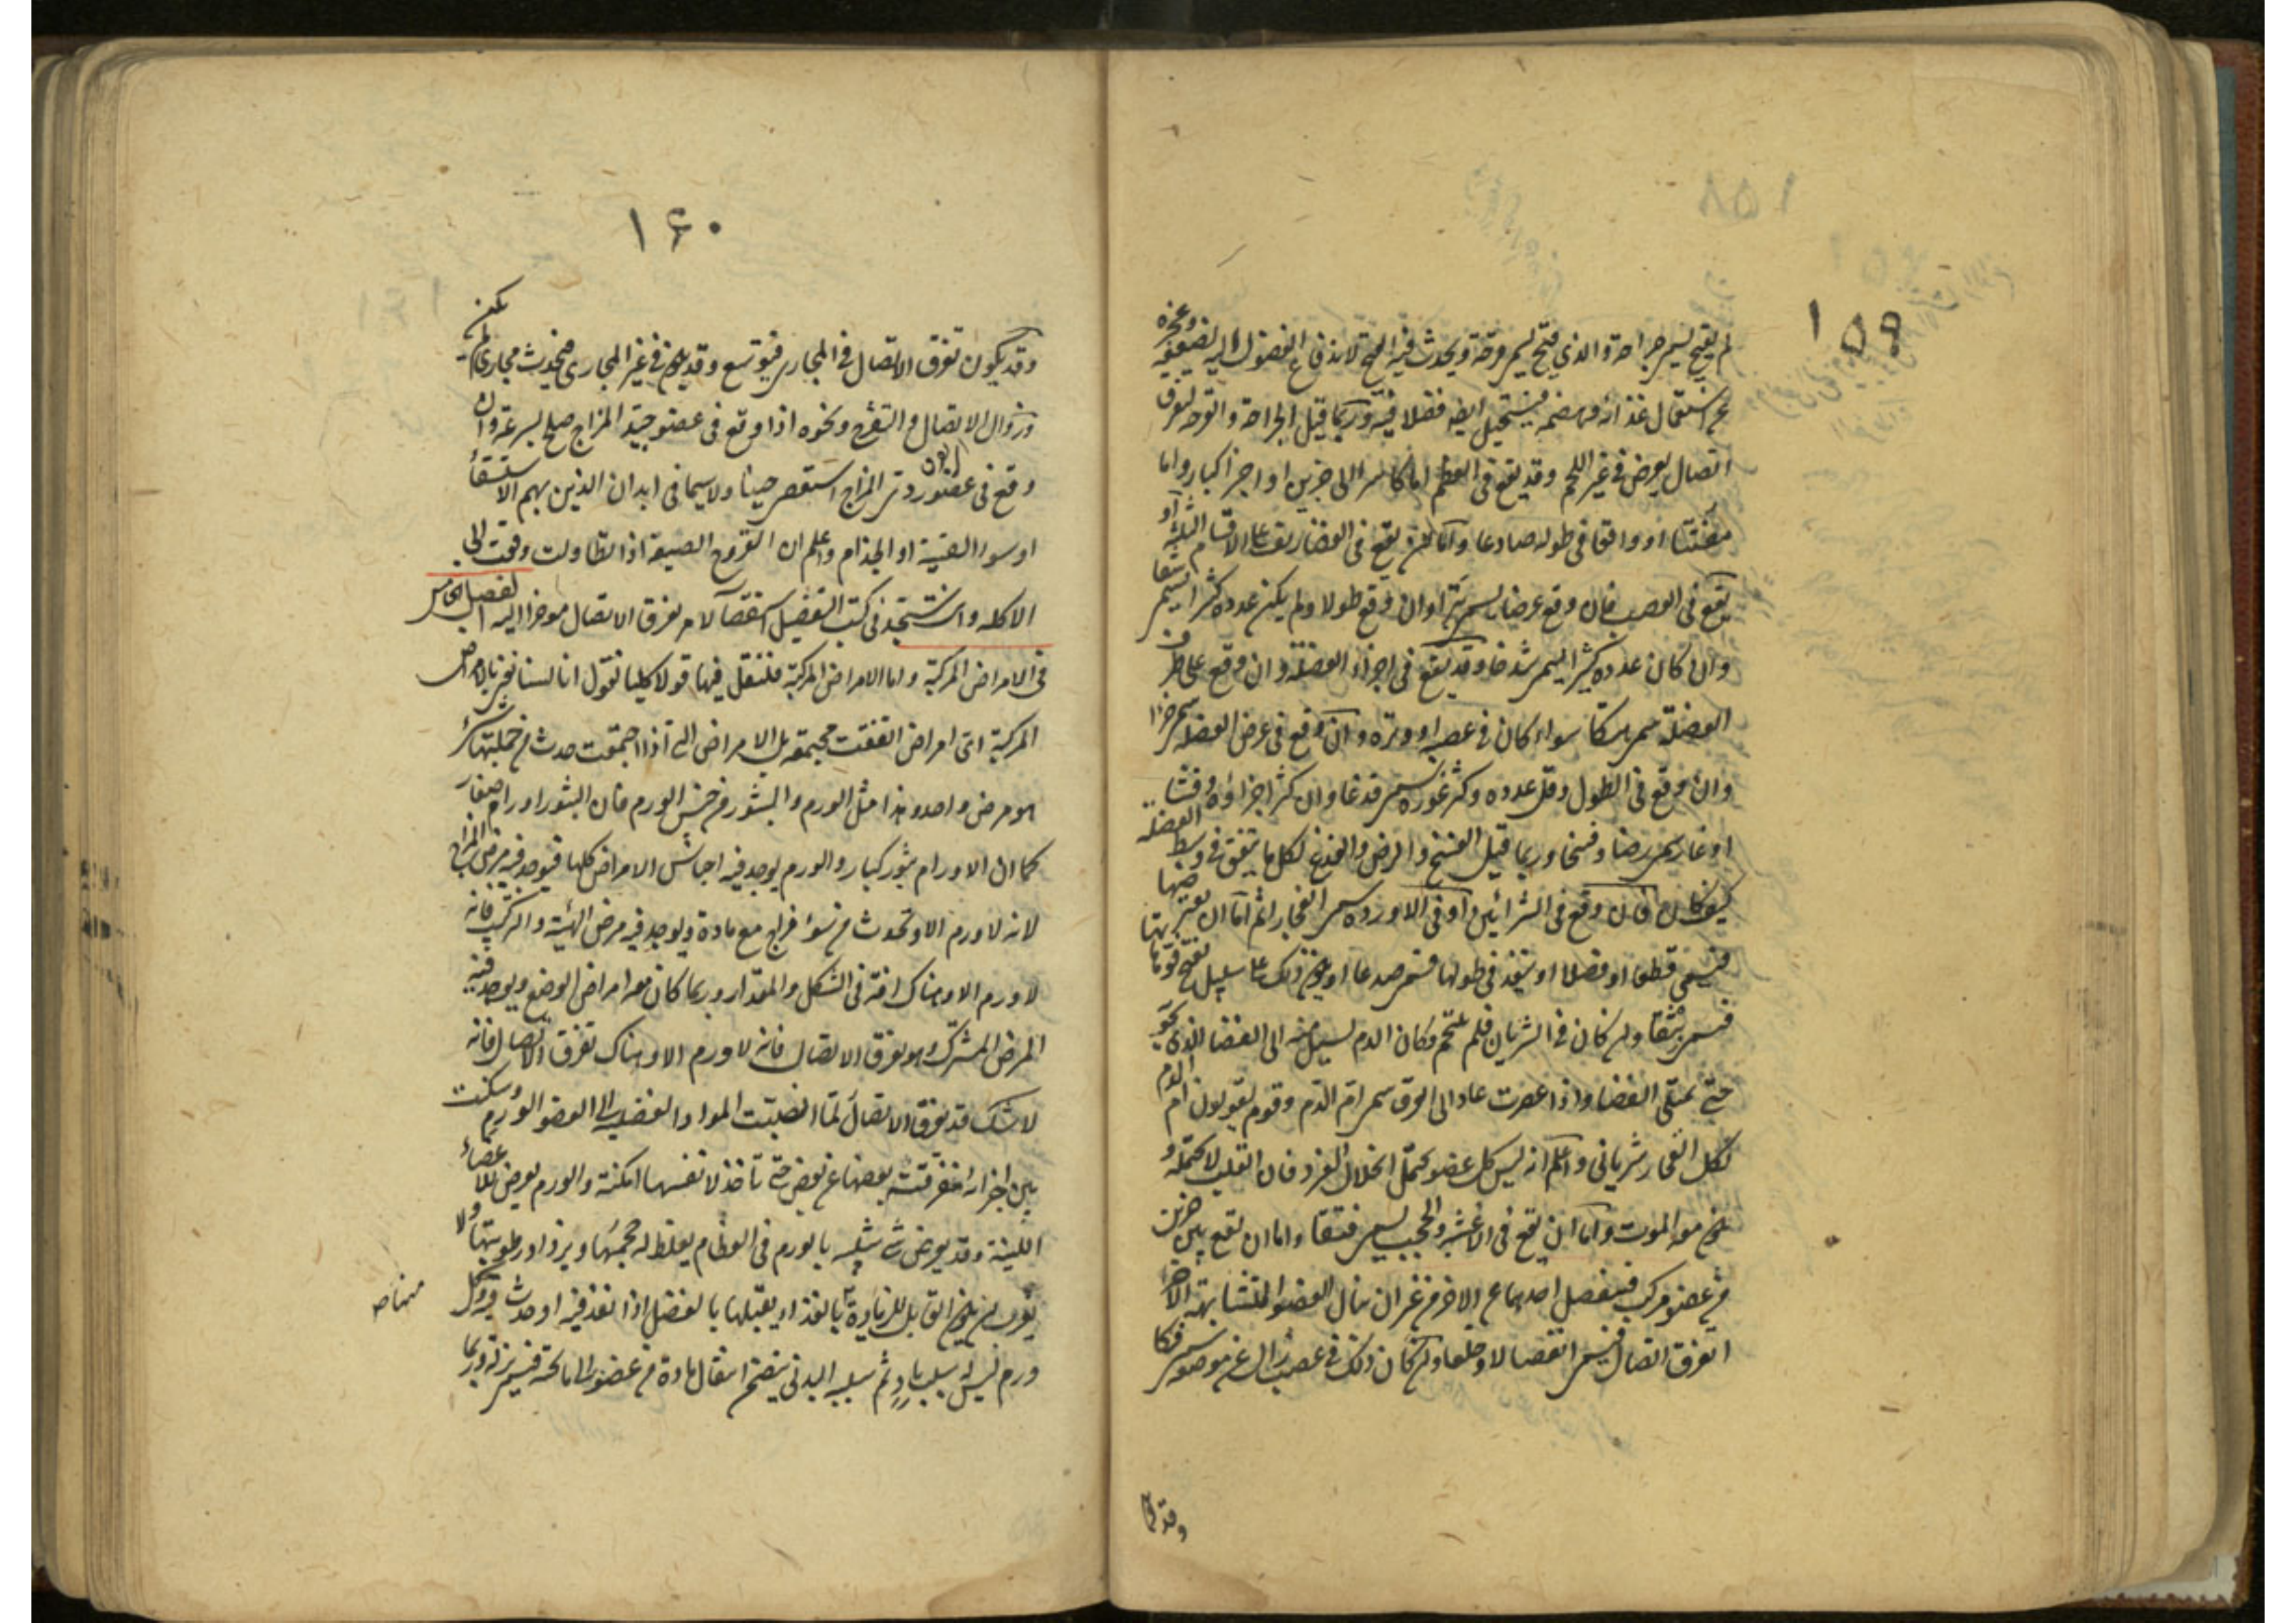 ١٥٩
لم يقيح يسمى جراحة والذي قيح يسمى قرحة ويحدث فيه القيح لاندفاع الفضول اليه لضعفه وعجزه
عن استعمال غذائه وهضمه فيستحيل ايضا فضلا فيه وربما قيل الجراحة والقرحة لتفرق
اتصال يعرض في غير اللحم وقد يقع في العظم اما كاسرا الى جزين او اجزا كبار واما
مفتتا او واقعا في طوله صادعا واما ان يقع في الغضاريف على الاقسام الثلثة او
يقع في العصب فان وقع عرضا يسمى بترا وان وقع طولا ولم يكن عدده كثيرا يسمى شقا
وان كان عدده كثيرا يسمى شدخا وقد يقع في اجزاء العضلة وان وقع على طرف
العضلة سمى هتكا سواء كان في عصبه او وتره وان وقع في عرض العضله سمى جزا
وان وقع في الطول وقل عدده وكثر غوره سمى فدغا وان كثر اجزاؤه وفشا
او غار سمى رضا وفسخا وربما قيل الفسخ والرض والفدغ لكل ما يتفق في وسط العضلة
كيف كان فان وقع في الشرائين او في الاورده سمى انفجارا ثم اما ان يعترضها
فيسمى قطعا او فصلا او ينفذ في طولها فسمى صدعا او يكون ذلك على سبيل تفتح فوهاتها
فسمى بثقا وان كان في الشريان فلم يلتحم وكان الدم يسيل منه الى الفضا الذي يحويه
حتى يمتلى الفضا واذا عصرت عاد الى العرق سمى ام الدم وقوم يقولون ام الدم
لكل انفجار شرياني واعلم انه ليس كل عضو يحتمل انحلال الفرد فان القلب لا يحتمله و
يكون معه الموت واما ان يقع في الاغشية والحجب فيسمى فتقا واما ان تقع بين جزين
من عضو مركب فيفصل احدهما عن الاخر من غير ان ينال العضو المتشابهة الاجزا
تفرق اتصال فيسمى انفصالا وخلعا وان كان ذلك في عصب زال عن موضعه سمى فكا
وقد يكون
١٦٠
وقد يكون تفرق الاتصال في المجارى فيوسع وقد يكون في غير المجارى فيحدث مجارى لم يكن
وزوال الاتصال والتقرح ونحوه اذا وقع في عضو جيد المزاج صلح بسرعة وان
وقع في عضو ردى المزاج استعصى حينا ولا سيما في ابدان الذين بهم الاستسقاء
او سوء القنية او الجذام واعلم ان القروح الصيفية اذا تطاولت وقعت الى
الاكله وانت ستجد في كتب التفصيل استقصآ لامر تفرق الاتصال موخرا اليه الفصل الخامس
في الامراض المركبة واما الامراض المركبة فلنقل فيها قولا كليا فنقول انا لسنا نعنى بالامراض
المركبة اى امراض اتفقت مجتمعه بل الامراض التي اذا اجتمعت حدث من جملتها شئ
هو مرض واحد وهذا مثل الورم والبثور من جنس الورم فان البثور اورام صغار
كما ان الاورام بثور كبار والورم يوجد فيه اجناس الامراض كلها فيوجد فيه مرض المزاج
لانه لا ورم الا وتحدث من سوء مزاج مع مادة ويوجد فيه مرض الهيئة والتركيب فانه
لا ورم الا وهناك افة في الشكل والمقدار وربما كان معه امراض الوضع ويوجد فيه
المرض المشترك وهو تفرق الاتصال فانه لا ورم الا وهناك تفرق الاتصال فانه
لا شك قد تفرق الاتصال لما انصبت المواد الفضلية الى العضو الورم وسكنت
بين اجزائه مفرقة بعضها عن بعض حتى تاخذ لانفسها امكنة والورم يعرض للاعضاء
اللينة وقد يعرض شئ شبيه بالورم في العظام يغلظ له حجمها ويزداد رطوبتها ولا
يكون القابل للزيادة بالغذاء يقبلها بالفضل اذا نفذ فيه او حدث فيه وكل
ورم ليس له سبب باد ثم سببه البدني يتضمن انتقال مادة من عضو الى ما تحته فيسمى نزلة وربما